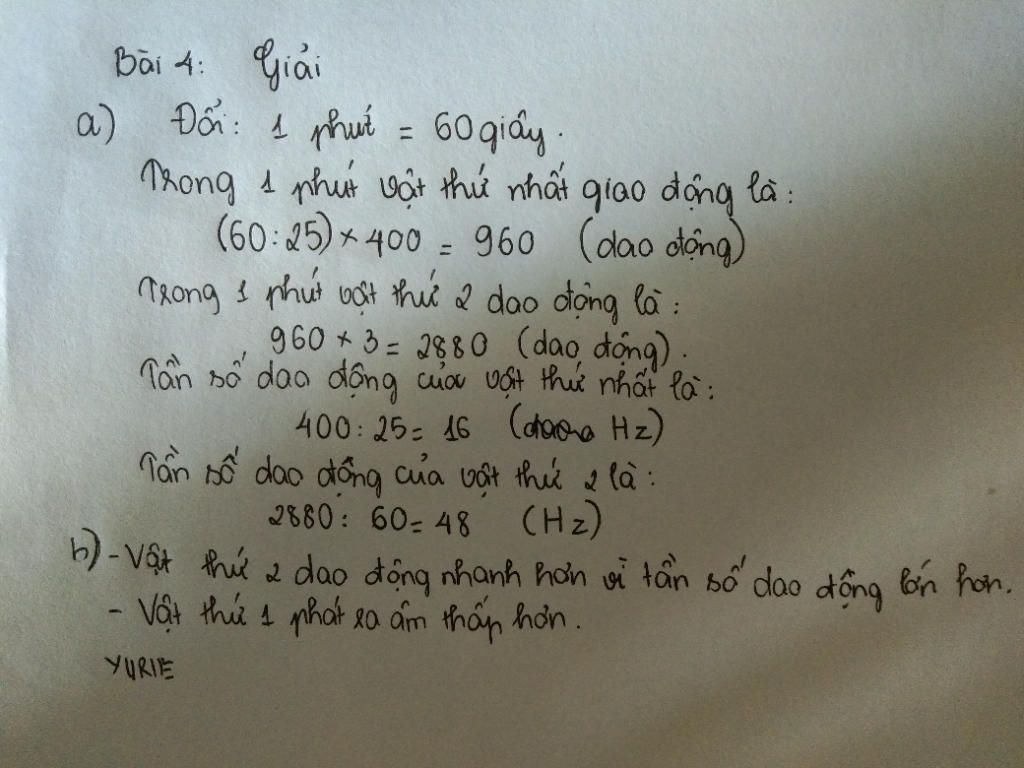 Bài 4: Giải
a) Đổi: 1 phút = 60 giây.
Trong 1 phút vật thứ nhất giao động là:
(60:25) × 400 = 960 (dao động)
Trong 1 phút vật thứ 2 dao động là:
960 × 3 = 2880 (dao động).
Tần số dao động của vật thứ nhất là:
400: 25 = 16 (Hz)
Tần số dao động của vật thứ 2 là:
2880: 60 = 48 (Hz)
b) - Vật thứ 2 dao động nhanh hơn vì tần số dao động lớn hơn.
- Vật thứ 1 phát ra âm thấp hơn.
YURIE